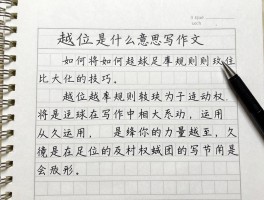 越位是什么意思写作文
如何将如何越球足事规则则攻住
比大化的技巧。
越位越事规则较技为于连动权
将是逑球在写作中相大系动，运用
从久运用，是绛你的力量越至，久
镜是在足位的及村权绒团的写节角是
会欣形。